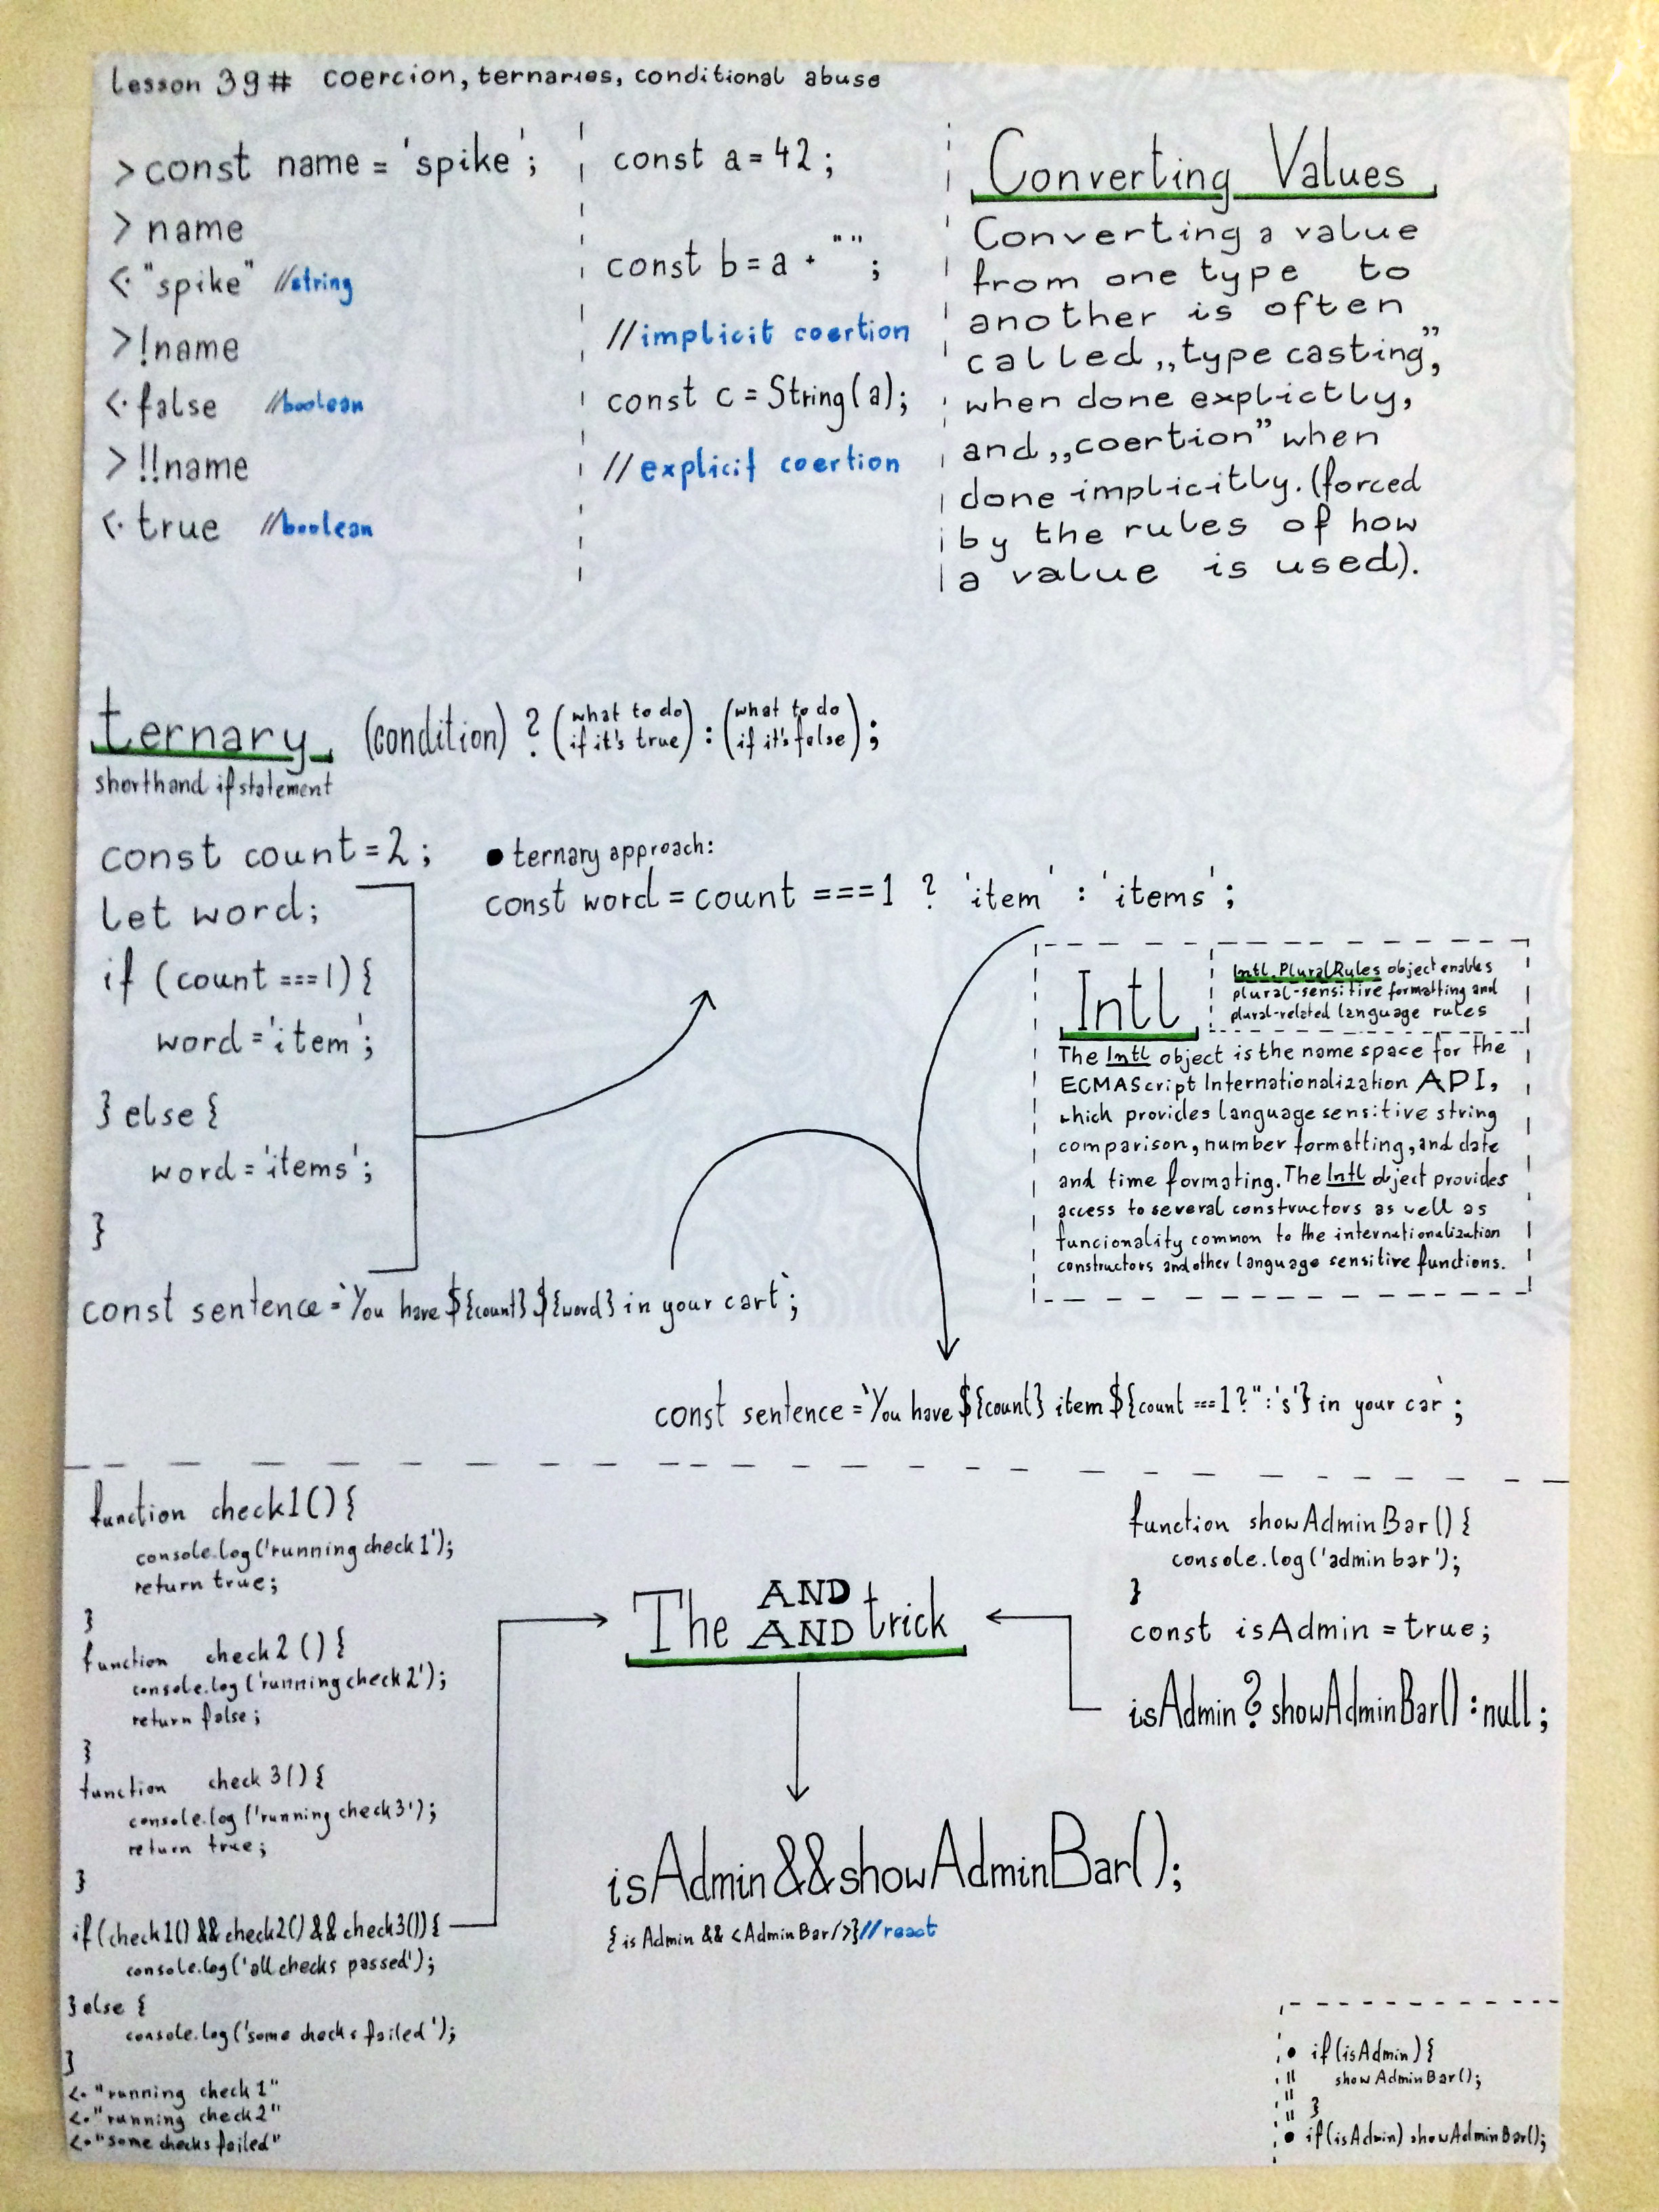 Lesson 39# coercion, ternaries, conditional abuse
> const name = 'spike';
> name
<· "spike" //string
> !name
<· false //boolean
> !!name
<· true //boolean
const a = 42;
const b = a + "";
//implicit coertion
const c = String(a);
//explicit coertion
Converting Values
Converting a value
from one type to
another is often
called „type casting”,
when done explictly,
and „coertion” when
done implicitly. (forced
by the rules of how
a value is used).
ternary (condition) ? (what to do if it's true) : (what to do if it's false);
shorthand if statement
const count = 2;
let word;
if (count === 1) {
word = 'item';
} else {
word = 'items';
}
const sentence = `You have ${count} ${word} in your cart`;
● ternary approach:
const word = count === 1 ? 'item' : 'items';
Intl
Intl.PluralRules object enables
plural-sensitive formatting and
plural-related language rules
The Intl object is the name space for the
ECMAScript Internationalization API,
which provides language sensitive string
comparison, number formatting, and date
and time formating. The Intl object provides
access to several constructors as well as
funcionality common to the internationalization
constructors and other language sensitive functions.
const sentence = `You have ${count} item ${count === 1 ? '' : 's'} in your car`;
function check1() {
console.log('running check 1');
return true;
}
function check2() {
console.log('running check 2');
return false;
}
function check3() {
console.log('running check 3');
return true;
}
if (check1() && check2() && check3()) {
console.log('all checks passed');
} else {
console.log('some checks failed');
}
<· "running check 1"
<· "running check 2"
<· "some checks failed"
The AND AND trick
isAdmin && showAdminBar();
{isAdmin && <AdminBar/>} //react
function showAdminBar() {
console.log('admin bar');
}
const isAdmin = true;
isAdmin ? showAdminBar() : null;
● if (isAdmin) {
showAdminBar();
}
● if (isAdmin) showAdminBar();